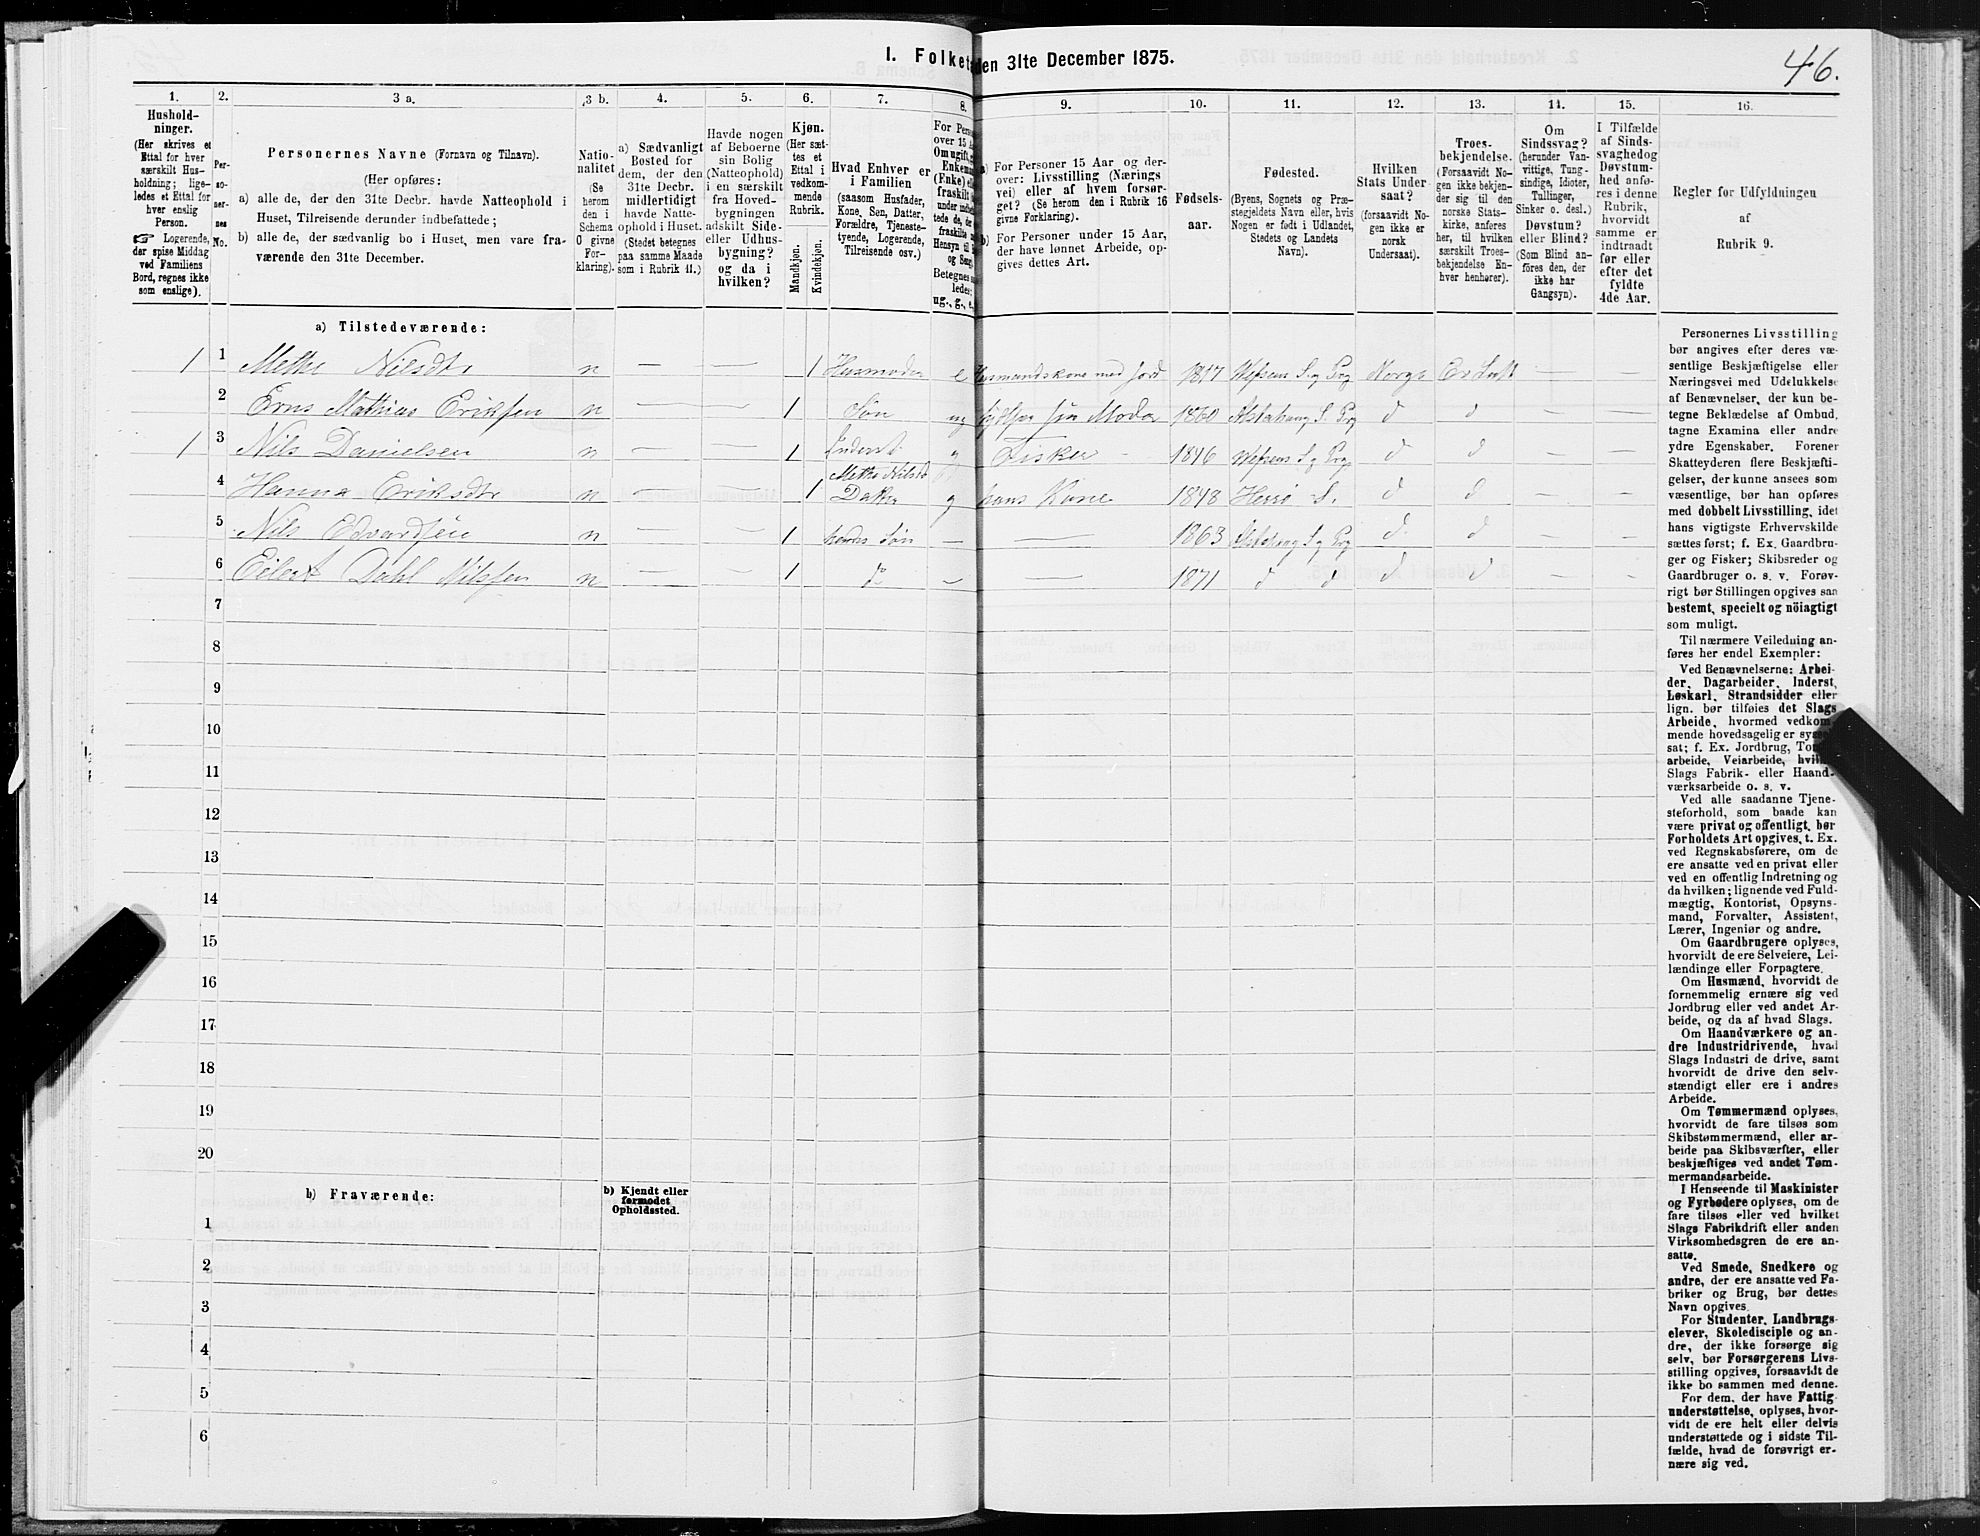 46.
I. Folket den 31te December 1875.
1. 2. 3 a. 3 b. 4. 5. 6. 7. 8. 9. 10. 11. 12. 13. 14. 15. 16.
Hushold-
ninger.
(Her skrives et
Ettal for hver
særskilt Hus-
holdning; lige-
ledes et Ettal for
hver enslig
Person.
☞ Logerende,
der spise Middag
ved Familiens
Bord, regnes ikke
som enslige).
Per-
so-
ner-
nes
No.
Personernes Navne (Fornavn og Tilnavn).
(Her opføres:
a) alle de, der den 31te Decbr. havde Natteophold i
Huset, Tilreisende derunder indbefattede;
b) alle de, der sædvanlig bo i Huset, men vare fra-
værende den 31te December.
Natio-
nalitet
(Se
herom
den i
Schema
C givne
For-
klaring).
a) Sædvanligt
Bosted for
dem, der den
31te Decbr.
midlertidigt
havde Natte-
ophold i Huset.
(Stedet betegnes
paa samme Maade
som i Rubrik 11.)
Havde nogen
af Beboerne
sin Bolig
(Natteophold)
i en særskilt
fra Hoved-
bygningen
adskilt Side-
eller Udhus-
bygning?
og da i
hvilken?
Kjøn.
(Her sæt-
tes et
Ettal i
vedkom-
mende
Rubrik.
Mandkjøn.
Kvindekjøn.
Hvad Enhver er
i Familien
(saasom Husfader,
Kone, Søn, Datter,
Forældre, Tjeneste-
tyende, Logerende,
Tilreisende osv.)
For Perso
over 15 A
Om ugift, g
Enkema
(Enke) e
fraskilt
under indbe
tede de, de
fraskilte
Hensyn til
og Seng
Betegnes s
ledes:
ug., g., e.
a) For Personer 15 Aar og der-
over: Livsstilling (Nærings
vei) eller af hvem forsør-
get? (Se herom den i Rubrik 16
givne Forklaring).
b) For Personer under 15 Aar,
der have lønnet Arbeide, op-
gives dettes Art.
Fødsels-
aar.
Fødested.
(Byens, Sognets og Præ-
stegjeldets Navn eller, hvis
Nogen er født i Udlandet,
Stedets og Landets
Navn).
Hvilken
Stats Under
saat?
(forsaavidt No-
gen ikke er
norsk
Undersaat).
Troes-
bekjendelse.
(Forsaavidt No-
gen ikke bekjen-
der sig til den
norske Stats-
kirke, anføres
her, til hvilken
særskilt Troes-
bekjendelse En-
hver henhører).
Om
Sindssvag?
(herunder Van-
vittige, Tung-
sindige, Idioter,
Tullinger,
Sinker o. desl.)
Døvstum?
eller Blind?
(Som Blind an-
føres den, der
ikke har
Gangsyn).
I Tilfælde
af Sinds-
svaghed og
Døvstum-
hed anfø-
res i denne
Rubrik,
hvorvidt
samme er
indtraadt
før eller
efter det
fyldte
4de Aar.
Regler for Udfyldningen
af
Rubrik 9.
a) Tilstedeværende:
1 1 Methe Nilsdtr n — — 1 Husmoder e Husmandskone med Jord 1817 Wefsens S. og Prg Norge — —
2 Erns Mathias Eriksen n — — 1 Søn ug sin Moder 1860 Alstahoug S. Prg d d — —
1 3 Nils Danielsen n 1 Inderst g Fisker 1846 Wefsens S. og Prg d d — —
4 Hanna Eriksdtr n — — 1 Methe Nilsdtr Datter g hans Kone 1848 Herrø S. d d — —
5 Nils Edvardsen n — — 1 Søn — — 1863 Alstahoug S. og Prg d d — —
6 Eilert Dahl Nilssen n — — 1 do — — 1871 d d d d — —
7
8
9
10
11
12
13
14
15
16
17
18
19
20
b) Fraværende:
b) Kjendt eller
formodet
Opholdssted.
1
2
3
4
5
6
Personernes Livsstilling
bør angives efter deres væ-
sentlige Beskjæftigelse eller
Næringsvei med Udelukkelse
af Benævnelser, der kun be-
tegne Beklædelse af Ombud,
tagne Examina eller andre
ydre Egenskaber. Forener
Skatteyderen flere Beskjæfti-
gelser, der kunne ansees som
væsentlige, bør han opføres
med dobbelt Livsstilling, idet
hans vigtigste Erhvervskilde
sættes først; f. Ex. Gaardbru-
ger og Fisker; Skibsreder og
Gaardbruger o. s. v. Forøv-
rigt bør Stillingen opgives saa
bestemt, specielt og nöiagtigt
som muligt.
Til nærmere Veiledning an-
føres her endel Exempler:
Ved Benævnelserne: Arbei-
der, Dagarbeider, Inderst,
Løskarl, Strandsidder eller
lign. bør tilføies det Slags
Arbeide, hvormed vedkom-
mende hovedsagelig er syssel
sat; f. Ex. Jordbrug, Tom
arbeide, Veiarbeide, hvil
Slags Fabrik- eller Haand-
værksarbeide o. s. v.
Ved alle saadanne Tjene-
steforhold, som baade kan
være privat og offentligt, bør
Forholdets Art opgives, t. Ex.
ved Regnskabsførere, om de
ere ansatte ved en privat eller
ved en offentlig Indretning og
da hvilken; lignende ved Fuld-
mægtig, Kontorist, Opsyns-
mand, Forvalter, Assistent,
Lærer, Ingeniør og andre.
Om Gaardbrugere oplyses,
hvorvidt de ere Selveiere, Lei-
lændinge eller Forpagtere.
Om Husmænd, hvorvidt de
fornemmelig ernære sig ved
Jordbrug eller ved andet Ar-
beide, og da af hvad Slags.
Om Haandværkere og an-
dre Industridrivende, hvad
Slags Industri de drive, samt
hvorvidt de drive den selv-
stændigt eller ere i andres
Arbeide.
Om Tømmermænd oplyses,
hvorvidt de fare tilsøs som
Skibstømmermænd, eller ar-
beide paa Skibsværfter, eller
beskjæftiges ved andet Tøm-
mermandsarbeide.
I Henseende til Maskinister
og Fyrbødere oplyses, om de
fare tilsøs eller ved hvilket
Slags Fabrikdrift eller anden
Virksomhedsgren de ere an-
satte.
Ved Smede, Snedkere og
andre, der ere ansatte ved Fa-
briker og Brug, bør dettes
Navn opgives.
For Studenter, Landbrugs-
elever, Skoledisciple og an-
dre, der ikke forsørge sig
selv, bør Forsørgerens Livs-
stilling opgives, forsaavidt de
ikke bo sammen med denne.
For dem, der have Fattig-
understøttelse, oplyses, hvor-
vidt de ere helt eller delvis
understøttede og i sidste Til-
fælde, hvad de forøvrigt er-
nære sig ved.